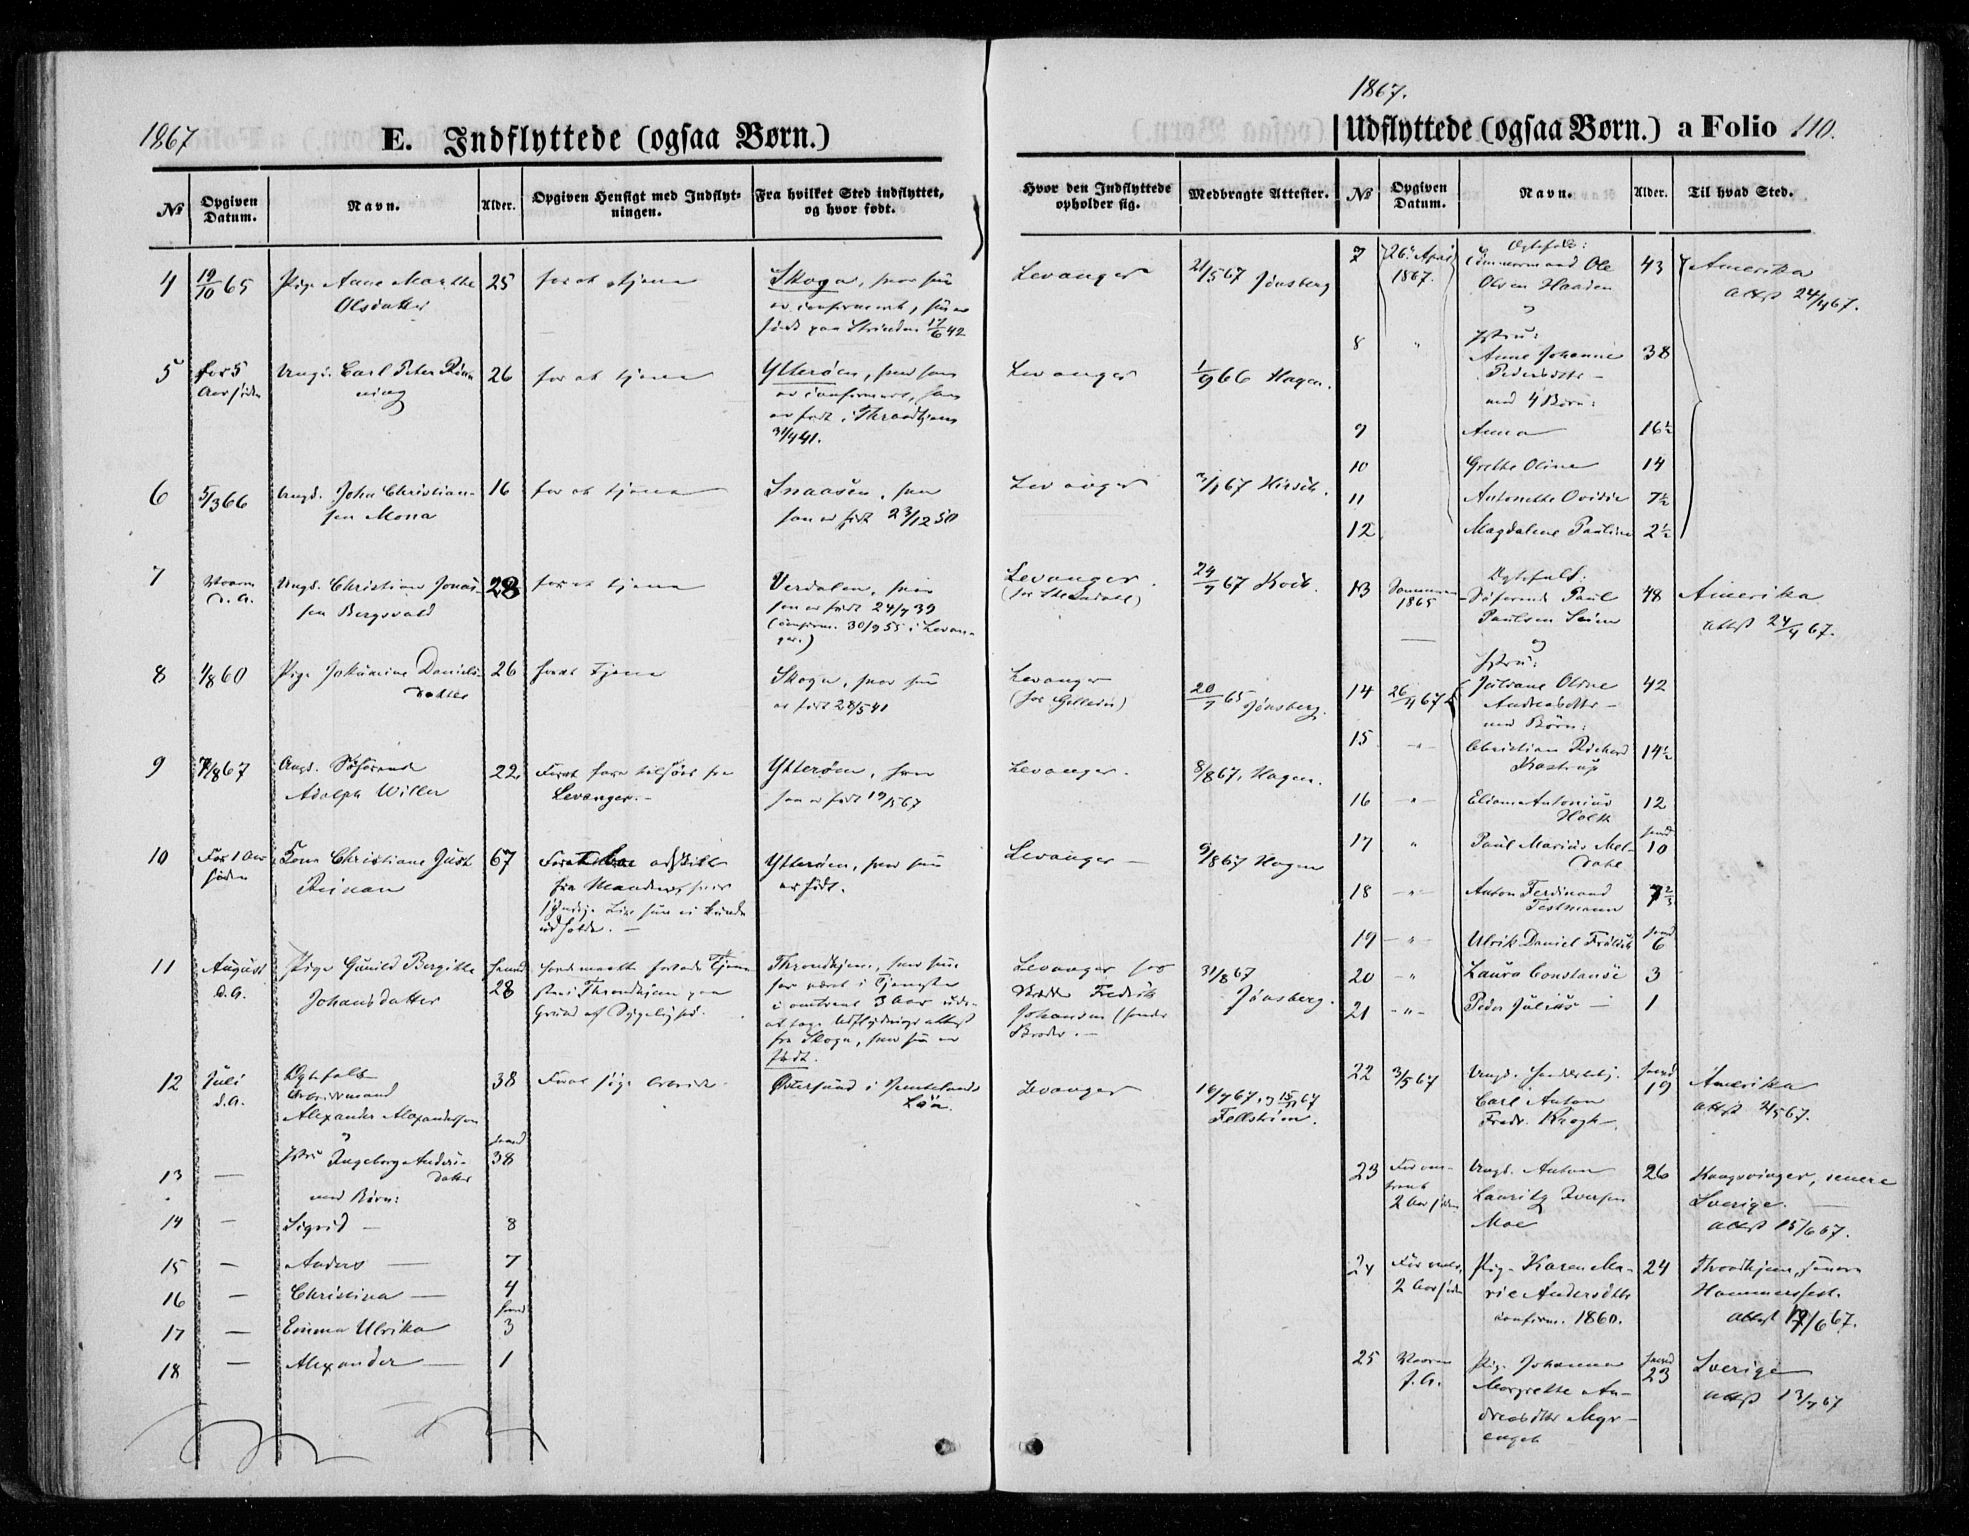 1867
E. Indflyttede (ogsaa Børn.)
№
Opgiven Datum.
Navn.
Alder.
Opgiven Hensigt med Indflytningen.
Fra hvilket Sted indflyttet, og hvor født.
Hvor den Indflyttede opholder sig.
Medbragte Attester.
4
19/10 65
Pige Anne Marthe
Olsdatter
25
for at tjene
Skogn, hvor hun
er confirmeret, hun er
født paa Strinden 17/6 42
Levanger
21/5 67 Jönsberg
5
for 5
Aar siden
Ungk. Carl Peter
26
for at tjene
Ytterøen, hvor han
er confirmeret, han
er født i Throndhjem
31/4 41.
Levanger
1/9 66 Hagen.
6
5/3 66
Ungk. John Christian-
sen Mona
16
for at tjene
Snaasen, hvor
han er født 23/12 50
Levanger
7
Vaaren
d. A.
Ungk. Christian Jonas-
sen Bergsvald
28
for at tjene
Verdalen, hvor
han er født 24/7 39
(confirm. 30/9 55 i Levan-
ger.)
Levanger.
24/7 67
8
1/8 60
Pige Daniels-
datter
26
forat tjene
Skogn, hvor hun
er født 28/5 41
Levanger
20/7 65 Jönsberg.
9
7/8 67
Ungk. Søfarende
Adolph Willer
22
Forat fare tilsøes fra
Levanger.-
Ytterøen, hvor
han er født
Levanger.
8/8 67. Hagen.
10
For 1 Aar
siden
Kone Christiane Just
Reinan
67
Forat adskilt
fra Manden, hvis
hun ei kunde
udholde. -
Ytterøen, hvor hun
er født.
Levanger -
9/8 67 Hagen
11
August
d. A.
Pige Gunild Bergitte
Johansdatter
28
forlade Tjene-
sten i Throndhjem paa
Grund af Sygelighed.
Throndhjem, hvor hun
har været i Tjeneste
i omtrent 3 Aar uden
at tage Udflytningsattest
fra Skogn, hvor hun er
født.
Levanger hos
Fredrik
Johansen (hendes
Broder. -
31/8 67
Jönsberg.
12
Juli
d. A.
Ægtefolk
Arbeidsmand
Alexander Alexandersson
og
38
Forat søge Arbeide.
Østersund i Jemtelands
Län
Levanger
16/7 67 og 15/7 67
Fellström.
13
—
Hustru Ingeborg Anders-
datter
med Børn:
38
14
—
Sigrid —
8
15
—
Anders —
7
16
—
Christina —
4
17
—
Emma Ulrika
3
18
—
Alexander —
1
1867.
Udflyttede (ogsaa Børn.) a Folio 110.
№
Opgiven Datum.
Navn.
Alder.
Til hvad Sted.
7
26. April
1867.
Ægtefolk:
Tømmermand Ole
Olsen Haaden
og
43
Amerika
attest 24/4 67.
8
"
Hustru:
Anne Johanne
Pedersdtr -
med 4 Børn:
38
9
Anna
16½
10
Grethe Oline
14
11
Antonette Ovidie
7½
12
Magdalene Pauline
2½
13
Sommeren
1865
Ægtefolk:
Søfarende Paul
Paulsen
og
48
Amerika
attest 24/4 67.
14
26/4 67
Hustru:
Juliane Oline
Andreasdtr -
med Børn:
42
15
-"-
Christian Richard
Kastrup
14½
16
-"-
Antonius
Holth
12
17
"
Paul Marius Mel-
dahl
10
18
-"-
Anton Ferdinand
7⅔
19
-"-
Ulrik Daniel Frölich
6
20
-"
Laura Constanse
3
21
-"-
Peder Julius -
1
22
3/5 67
Ungk. Handelsbetj.
Carl Anton
Fredr. Krogh.
19
Amerika
attest 2/5 67.
23
For om-
trent
2 Aar siden
Ungk. Anton
Lauritz Iversen
Moe
26
Kongsvinger, senere
Sverige. —
attest 15/6 67.
24
For
2 Aar siden
Pige Karen Ma-
rie Andersdtr
confirm. 1860.
24
Throndhjem, senere
Hammerfest.
25
Vaaren
f. A.
Pige Johanna
Margrethe An-
dreasdtr Myr-
engelt
23
Sverige
attest 13/7 67